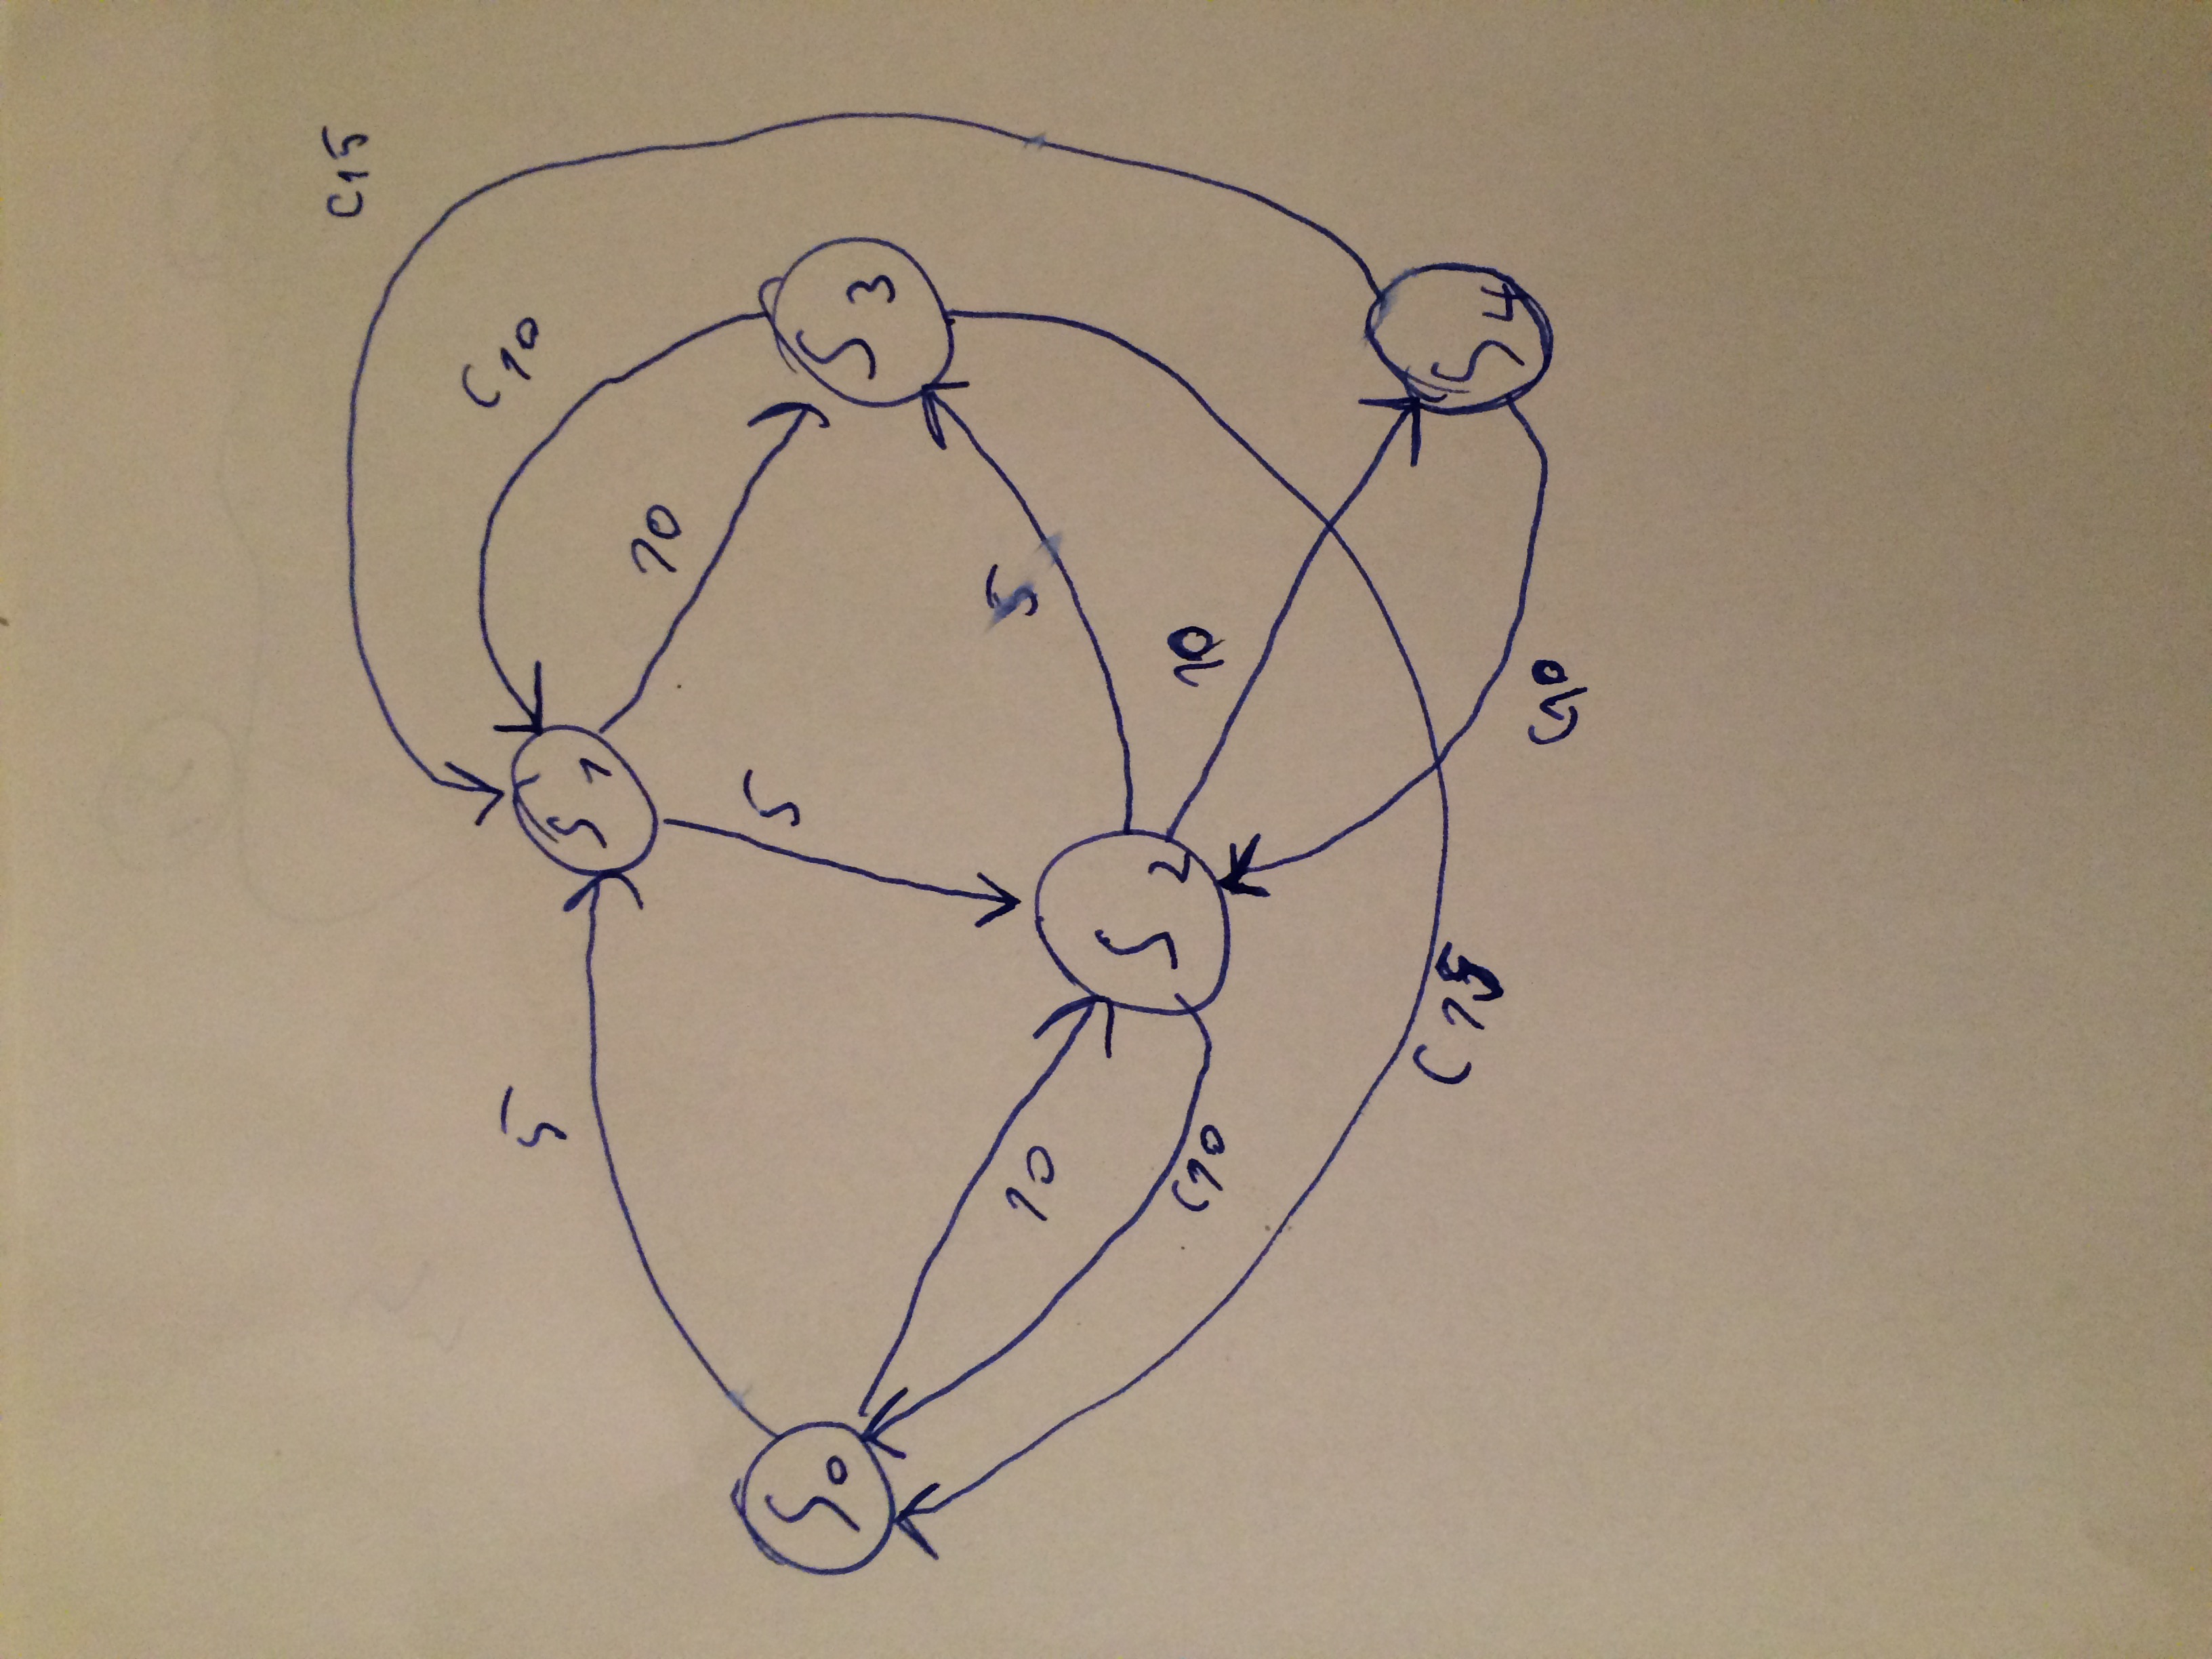 C15
C10
5
S1
10
5
S0
S3
5
10
S2
10
C10
C15
S4
C10